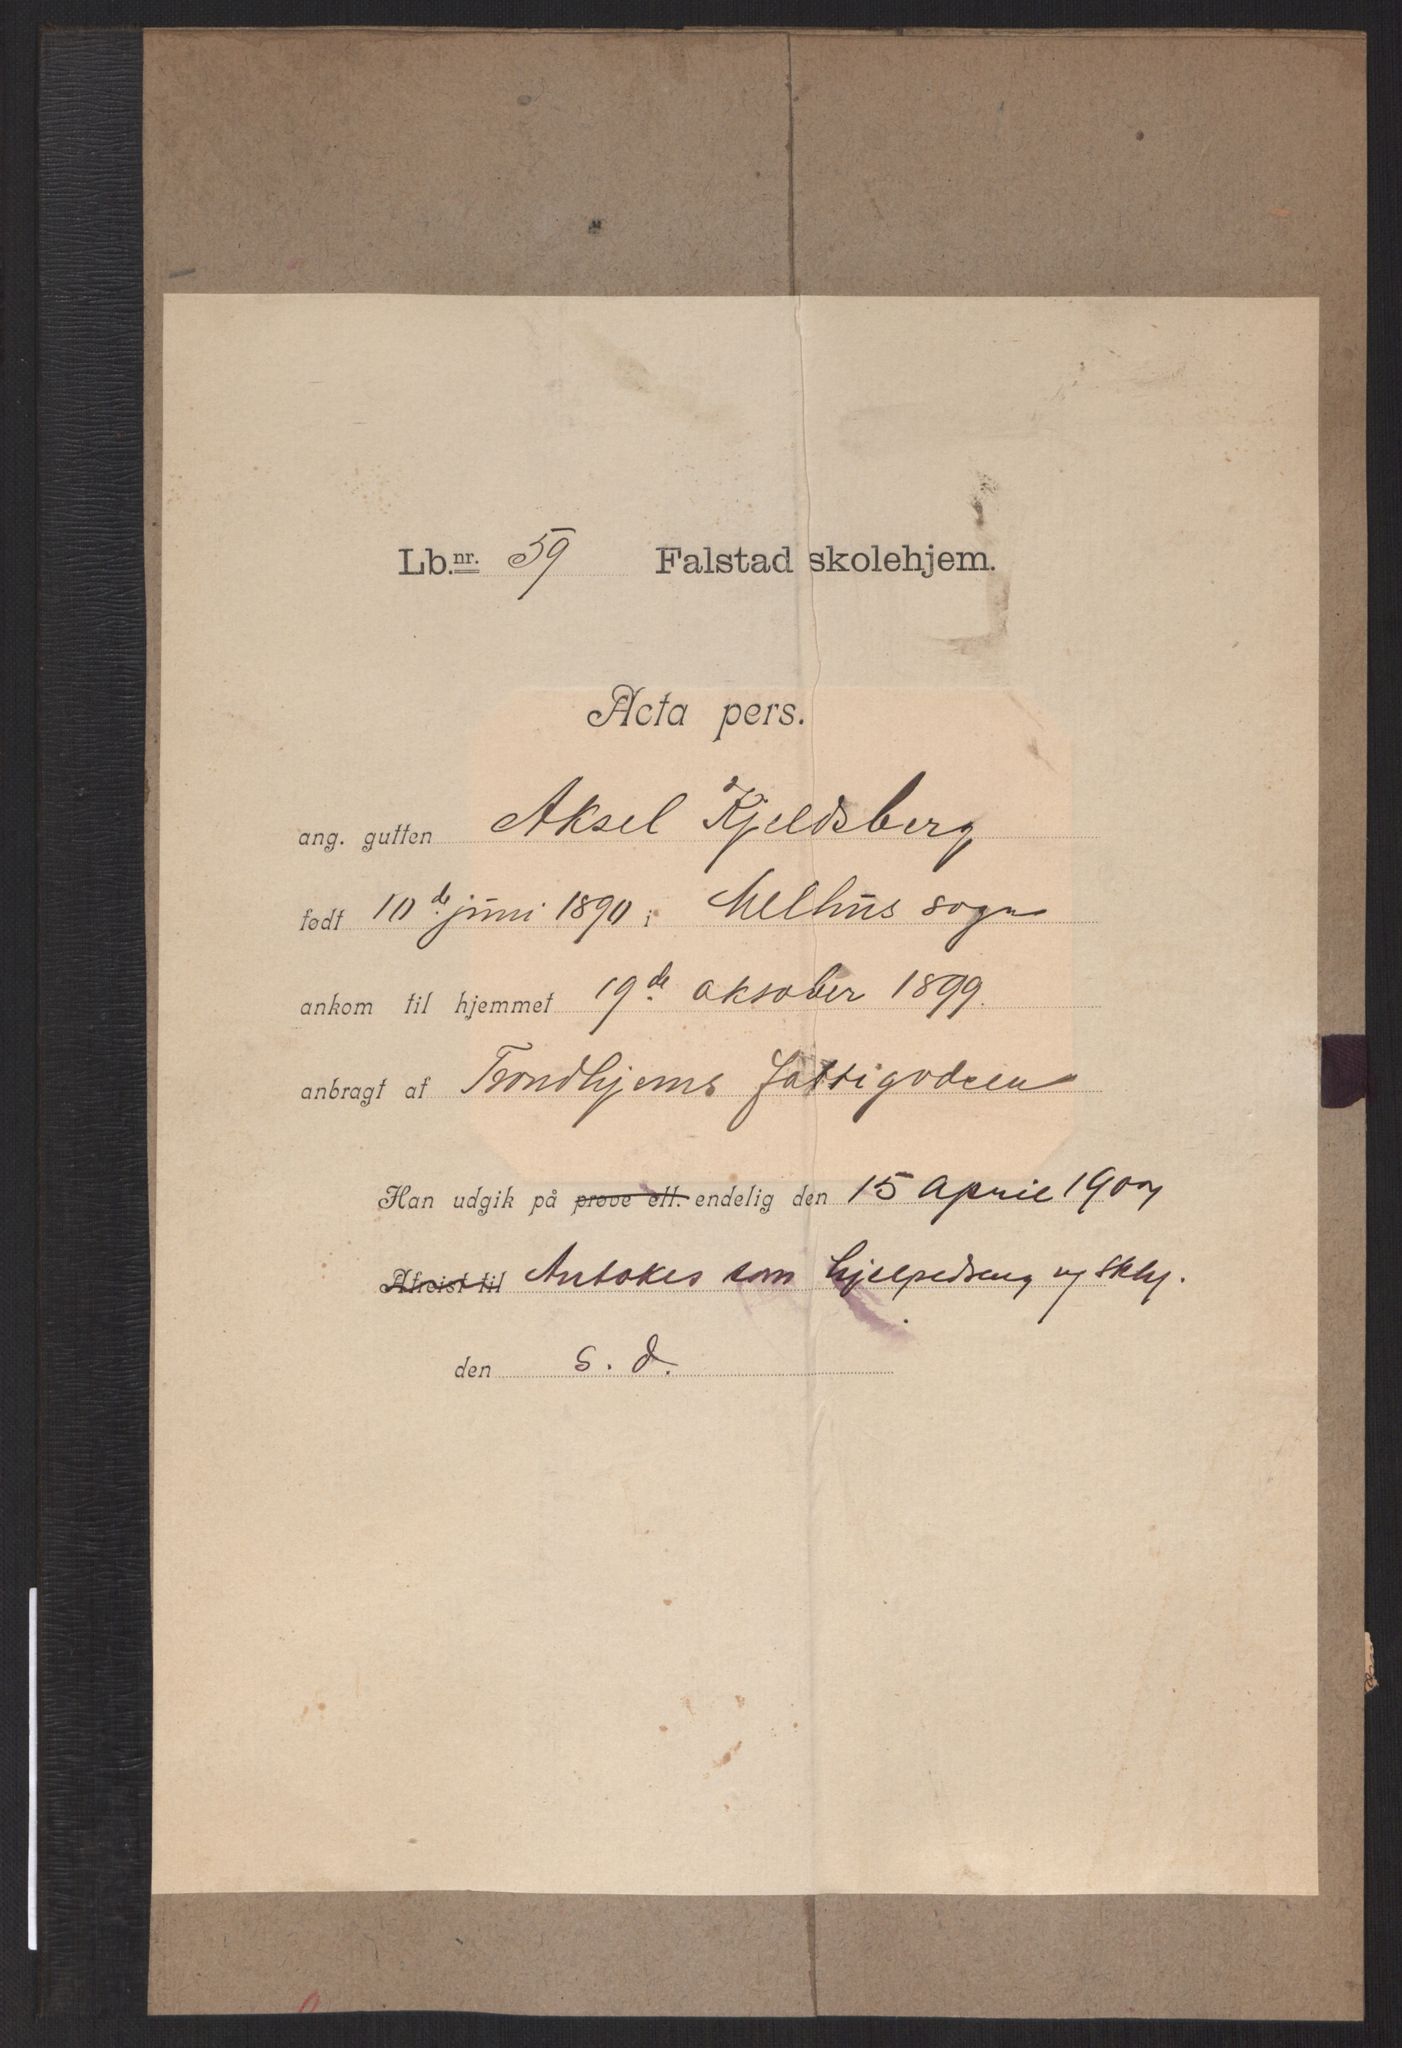 Lb.nr. 59 Falstad skolehjem.
Acta pers.
ang. gutten Aksel Kjeldsberg
født 10de juni 1890 i Melhus sogn
ankom til hjemmet 19de oktober 1899.
anbragt af Trondhjems fattigvæsen
Han udgik på prøve ell. endelig den 15 April 1907
Afreist til Antokes som hjelpedreng v/ Skhj.
den s. d.